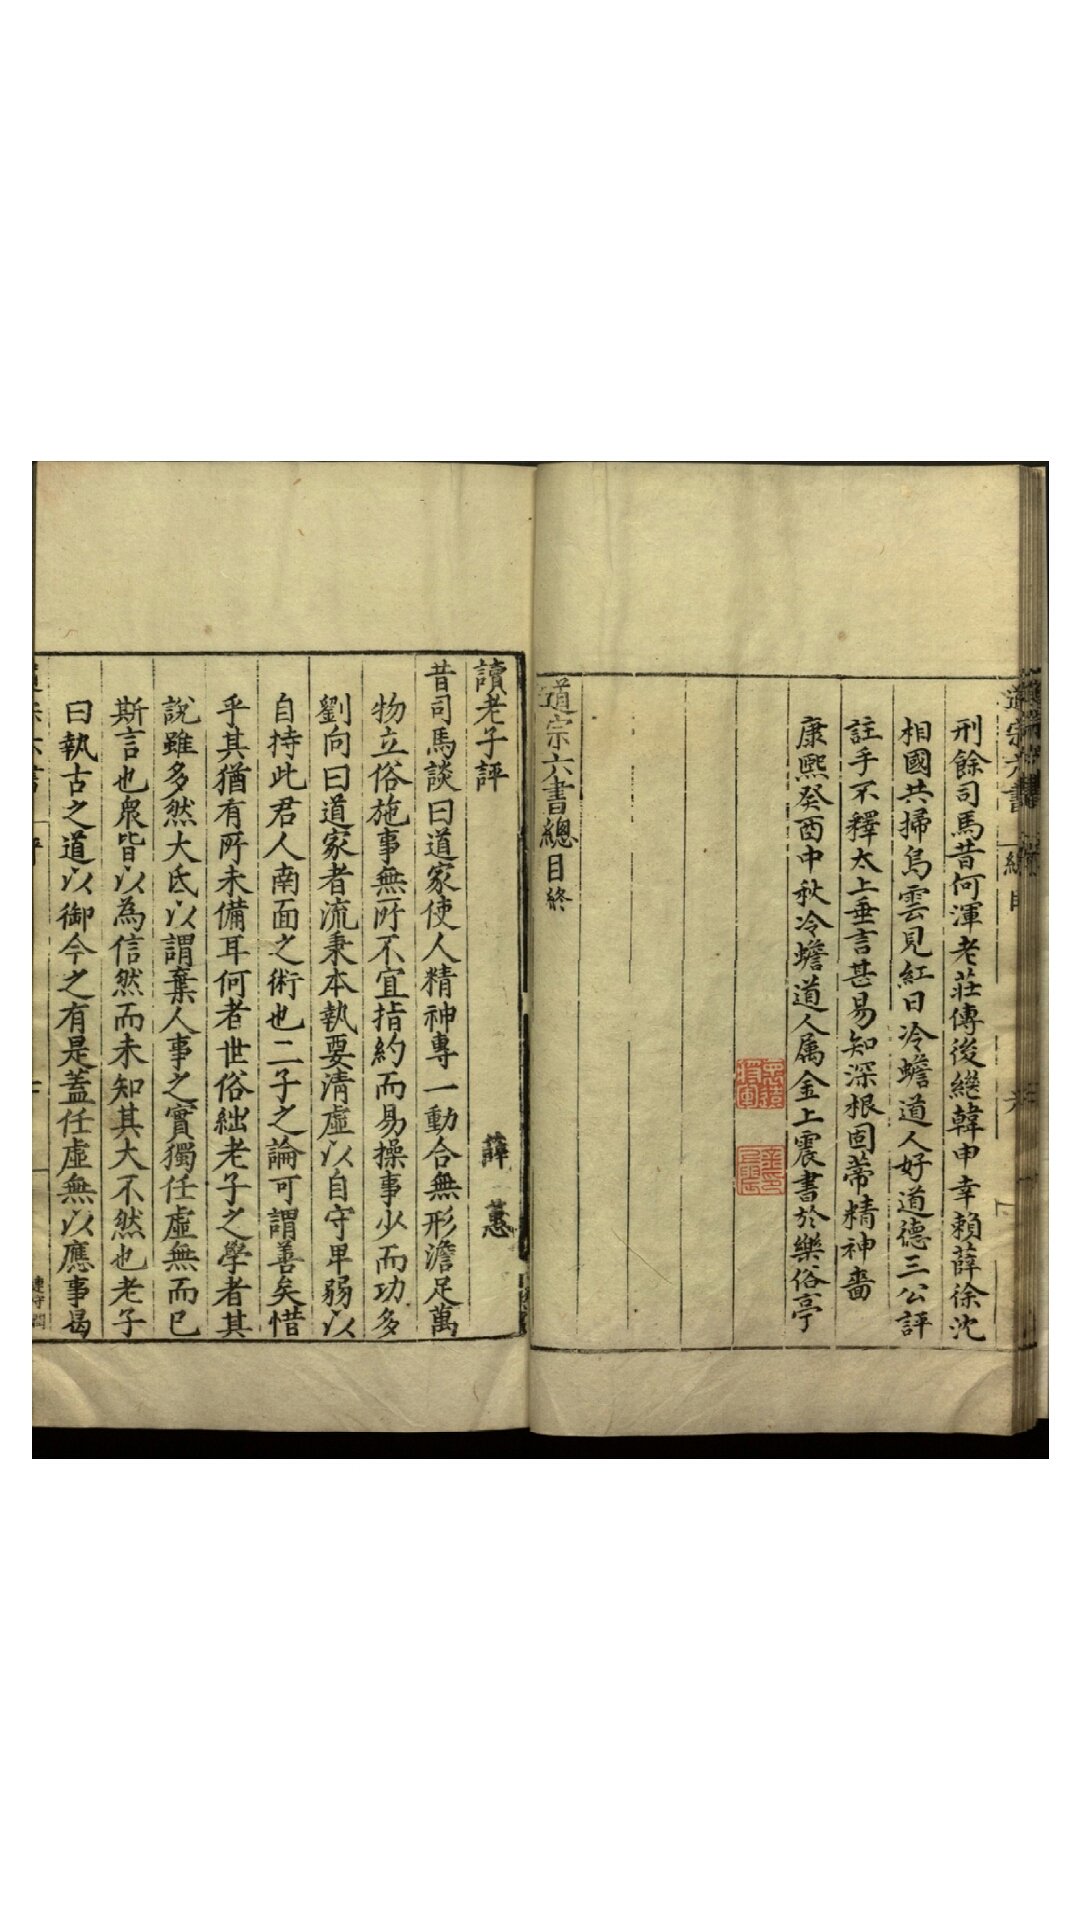 道宗六書
刑餘司馬昔何渾老莊傳後繼韓申幸賴薛徐沈
相國共掃烏雲見紅日冷蟾道人好道德三公評
註手不釋太上垂言甚易知深根固蒂精神嗇
康熙癸酉中秋冷蟾道人属金上震書於樂俗亭
道宗六書總目終
讀老子評
薛蕙
昔司馬談曰道家使人精神專一動合無形澹足萬
物立俗施事無所不宜指約而易操事少而功多
劉向曰道家者流秉本執要清虛以自守卑弱以
自持此君人南面之術也二子之論可謂善矣惜
乎其猶有所未備耳何者世俗絀老子之學者其
說雖多然大氐以謂棄人事之實獨任虛無而已
斯言也衆皆以為信然而未知其大不然也老子
曰執古之道以御今之有是蓋任虛無以應事曷